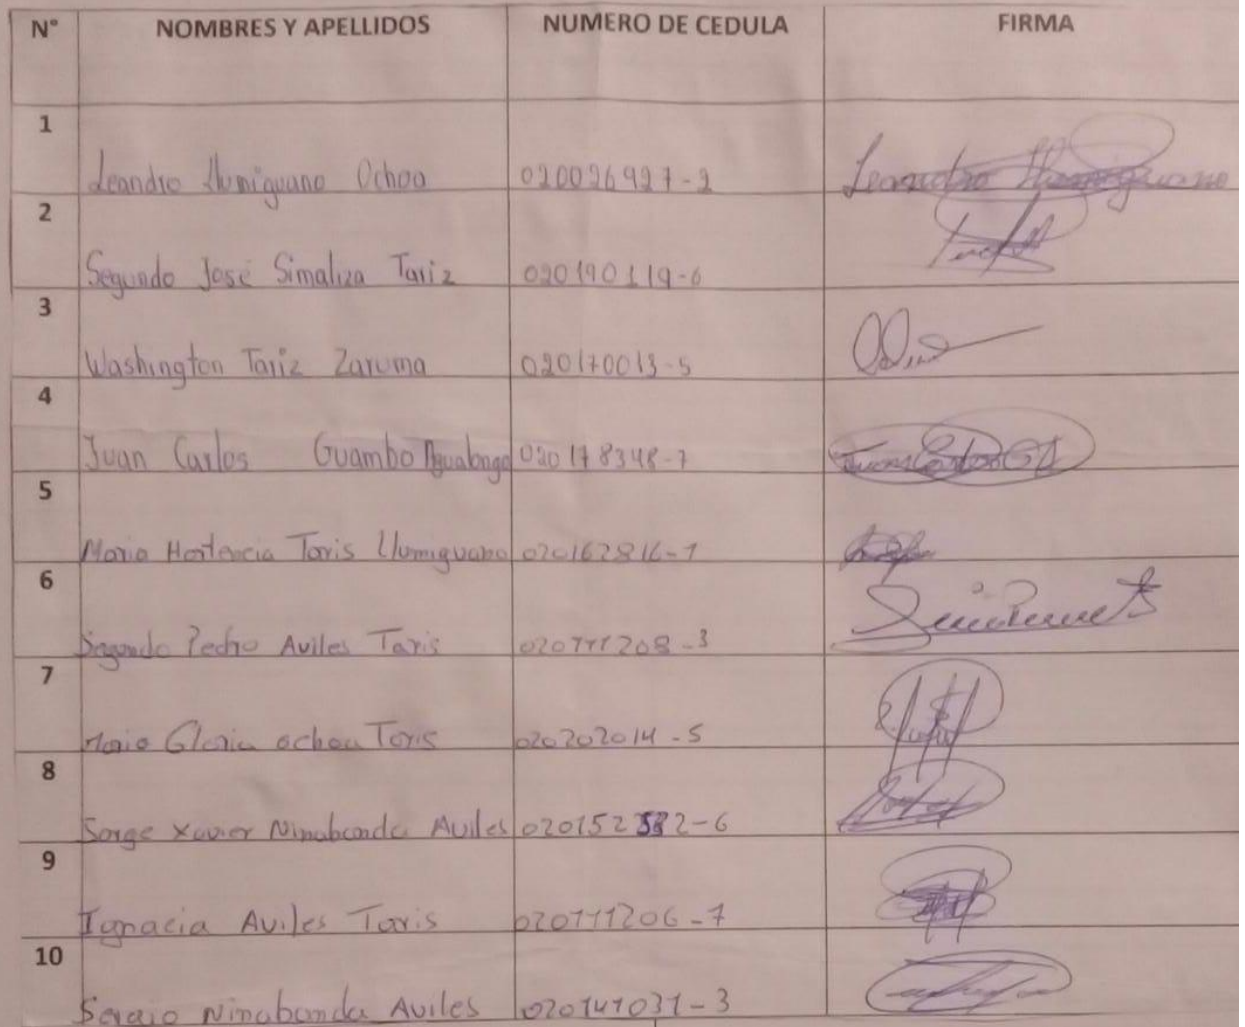 N° NOMBRES Y APELLIDOS NUMERO DE CEDULA FIRMA
1 Leandro Llumiguano Ochoa 020026927-2 Leandro Llumiguano
2 Segundo José Simaliza Tariz 020190119-6
3 Washington Tariz Zaruma 020170013-5
4 Juan Carlos Guambo Agualongo 020178348-7 Juan Carlos G A
5 Maria Hortencia Taris Llumiguano 020162816-1
6 Segundo Pedro Aviles Taris 020111208-3
7 Maria Gloria ochoa Taris 020202014-5
8 Jorge Xavier Ninabanda Aviles 020152582-6
9 Ignacia Aviles Taris 020111206-7
10 Sergio Ninabanda Aviles 020141031-3